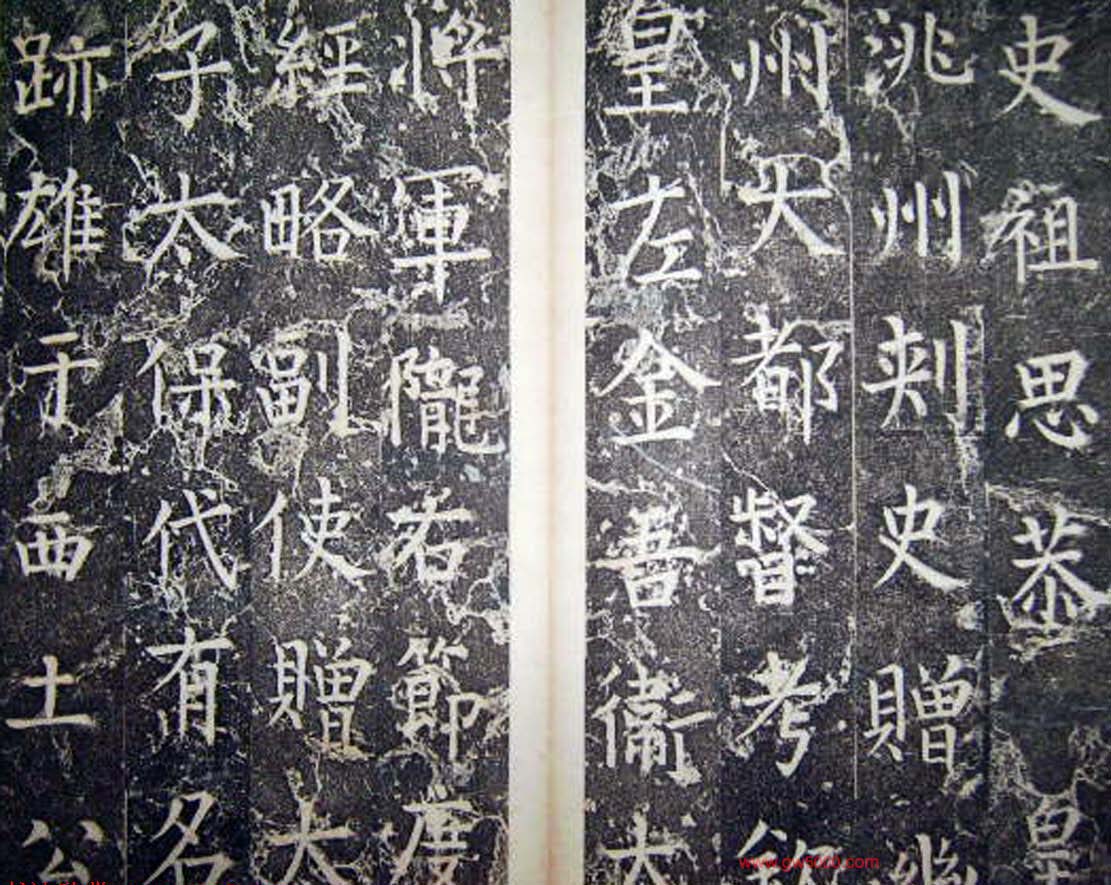 史祖思恭皇
洮州刺史贈幽
州大都督考欽
皇左金吾衛大
將軍隴右節度
經略副使贈太
子太保代有名
跡雄于西土公